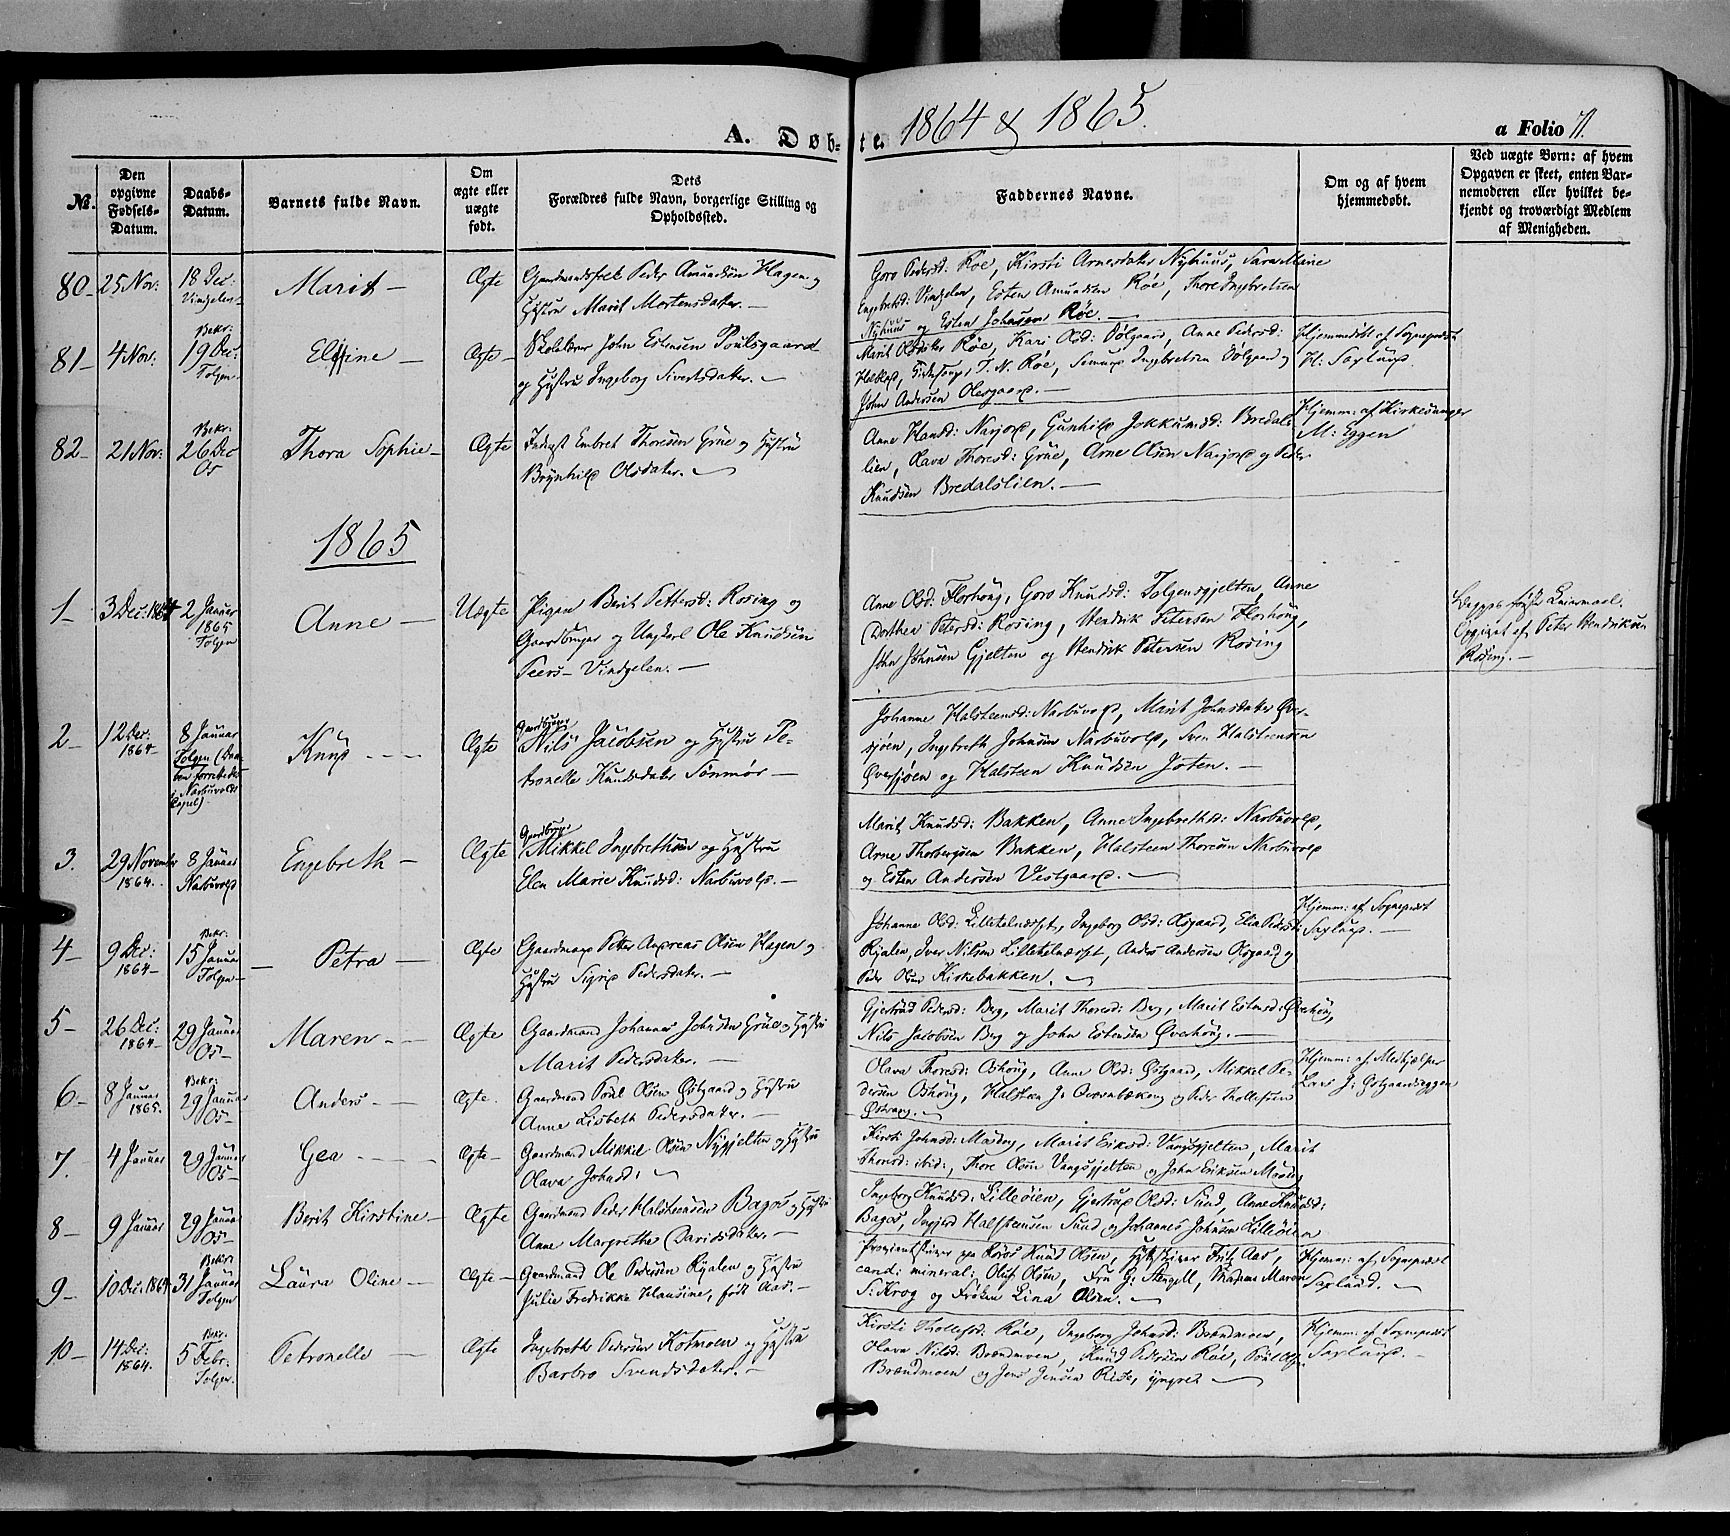 A. Døb- te. 1864 & 1865. a Folio 71.
№.
Den opgivne Fødsels-Datum.
Daabs-Datum.
Barnets fulde Navn.
Om ægte eller uægte født.
Dets Forældres fulde Navn, borgerlige Stilling og Opholdssted.
Faddernes Navne.
Om og af hvem hjemmedøbt.
Ved uægte Børn: af hvem Opgaven er skeet, enten Barnemoderen eller hvilket bekjendt og troværdigt Medlem af Menigheden.
80 – 25 Nov: 18 Dec: Vingelen – Marit – Ægte
Gaardmandsfolk Peder Amundsen Hagen og
Hustru Marit Mortensdatter. –
Goro Pedersd: Røe, Kirsti Arnesdatter Nyhuus, Sara Marie
Engebretsd: Vingelen, Esten Amundsen Røe, Thore Ingebretsen
Nyhuus og Esten Johnsen Røe. –
81 – 4 Nov. Bekr: 19 Dec: Tolgen Eline – Ægte –
Skolelærer John Estensen Poulsgaard
og Hustru Ingeborg Sivertsdatter. –
Marit Olsdatter Røe, Kari Olsd: Dølgaard, Anne Pedersd:
T. N. Røe, Ingebretsen Dølgaard og
John Andersen
Hjemmedøbt af Sognepræst
H: Saxlund.
82 – 21 Nov: Bekr: 26 Dec Os Thora Sophie – Ægte
Inderst Embret Thoresen Grue og Hustru
Brynhild Olsdatter. –
Anne Hansd: Narjord, Gunhild Jokkumsd: Bredals
lien, Olava Thoresd: Grue, Arne Olsen Narjord og Peder
Knudsen Bredalslien. –
Hjemm: af Kirkesanger
M: Eggen
1865
1 – 3 Dec: 1864 2 Januar 1865 Tolgen Anne – Uægte
Pigen Berit Pettersd: Rosing og
Gaardbruger og Ungkarl Ole Knudsen
Peers – Vingelen. –
Anne Olsd: Florhøug, Goro Knudsd: Tolgensgjelten, Anne
Dorthea Petersd: Rosing, Hendrik Petersen Florhoug,
John Johnsen Gjelten og Hendrik Petersen Rosing
Begges første Leiermaal.
Opgivet af Peter Hendriksen
Rosing. –
2 – 12 Dec: 1864 – 8 Januar Tolgen (Daaben forrettedes i Narbuvolds Capel) Knud – – – Ægte
Gaardbruger
Nils Jacobsen og Hustru Pe-
tronelle Knudsdatter Sønmør –
Johanne Halsteensd: Narbuvold, Marit Johnsdatter Øver-
sjøen, Ingebreth Johnsen Narbuvold, Sven Halsteensen
Øversjøen og Halsteen Knudsen Joten. –
3. 29 November 1864. 8 Januar Narbuvold Engebreth – Ægte
Gaardbrug:
Mikkel Ingebrethsen og Hustru
Elen Marie Knudsd: Narbuvold. –
Marit Knudsd: Bakken, Anne Ingebrethsd: Narbuvold,
Arne Thorbergsen Bakken, Halsteen Thoresen Narbuvold
og Esten Andersen Vestgaard. –
4 – 9 Dec: 1864 – Bekr: 15 Januar Tolgen – Petra – Ægte
Gaardmand Peter Andreas Olsen Hagen og
Hustru Sigrid Pedersdatter. –
Johanne Olsd: Lilletelneset, Ingeborg Olsd: Olsgaard, Elia Pedersd:
Ryalen, Iver Nilsen Lilletelneset, Anders Andersen Olsgaard og
Peder Olsen Kirkebakken. –
Hjemm: af Sognepræst
Saxlund. –
5 – 26 Dec: 1864 – 29 Januar Os – Maren – – Ægte
Gaardmand Johannes Johnsen Grue og Hustru
Marit Pedersdatter. –
Gjertrud Pedersd: Berg, Marit Thoresd: Berg, Marit Estensd: Øverhøug,
Nils Jacobsen Berg og John Estensen Øverhøug. –
6 – 8 Januar 1865. Bekr: 29 Januar Os – Anders – – Ægte.
Gaardmand Poul Olsen Østgaard og Hustru
Anne Lisbeth Pedersdatter. –
Olava Thoresd: Oshøug, Anne Olsd: Østgaard, Mikkel Pe-
dersen Oshøug, Halsteen J. og Peder Tollefsen
Hjemm: af Medhjælper
Lars J: Østgaardseggen
7. 4 Januar 29 Januar Os – Gea – – – Ægte –
Gaardmand Mikkel Olsen Nygjelten og Hustru
Olava Johnsd: –
Kirsti Johnsd: Moseng, Marit Eriksd: Vangsgjelten, Marit
Thoresd: ibid:, Thore Olsen Vangsgjelten og John Eriksen
8 – 9 Januar 29 Januar Os – Berit Kirstine – Ægte
Gaardmand Peder Halsteensen Bagos og Hustru
Anne Margrethe Davidsdatter. –
Ingeborg Knudsd: Lilleøien, Gjertrud Olsd: Sund, Anne Knudsd:
Bagos, Ingjerd Halsteensen Sund og Johannes Johnsen Lilleøien
9 – 10 Dec. 1864 – Bekr: 31 Januar Tolgen Laura Oline – Ægte –
Gaardmand Ole Pedersen Ryalen og Hustru
Julie Fredrikke Hansine, født Aas. –
Proviantskriver paa Røros Knud Olsen, Hytteskriver Fritz Aas,
cand: mineral: Oluf Olsen, Fru G: Stengell, Madame Maren
S: Krog og Frøken Lina Olsen. –
Hjemm: af Sognepræst
Saxlund. –
10 – 14 Dec: 1864. Bekr: 5 Febr: Tolgen. Petronelle – Ægte
Ingebreth Pedersen Kotmoen og Hustru
Barbro Svendsdatter. –
Kirsti Thollefsd: Røe, Ingeborg Johnsd: Brændmoen,
Olava Nilsd: Brændmoen, Knud Pedersen Røe, Poul Olsen
Brændmoen og Jens Jensen Riise, yngre –
Hjemm: af Sognepræst
Saxlund. –